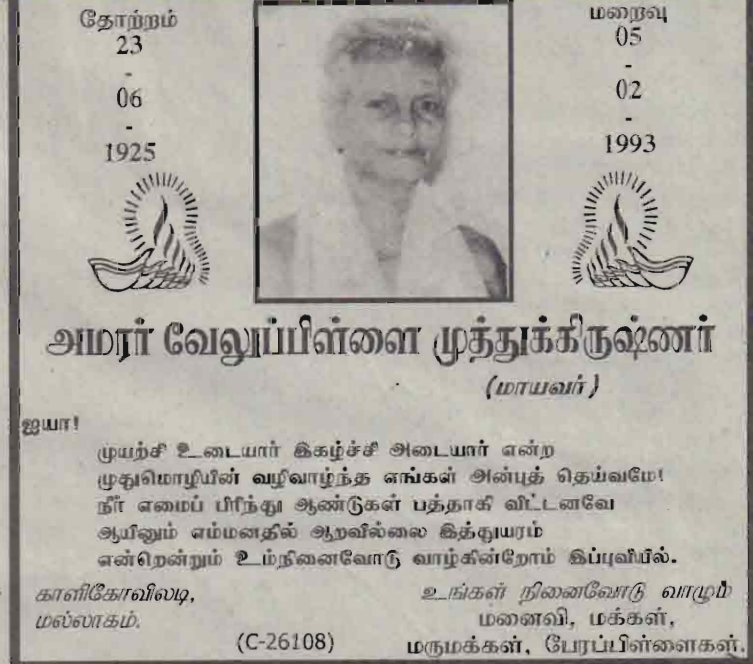 தோற்றம்
23
-
06
-
1925
மறைவு
05
-
02
-
1993
அமரர் வேலுப்பிள்ளை முத்துக்கிருஷ்ணர்
(மாயவர்)
ஐயா!
முயற்சி உடையார் இகழ்ச்சி அடையார் என்ற
முதுமொழியின் வழிவாழ்ந்த எங்கள் அன்புத் தெய்வமே!
நீர் எமைப் பிரிந்து ஆண்டுகள் பத்தாகி விட்டனவே
ஆயினும் எம்மனதில் ஆறவில்லை இத்துயரம்
என்றென்றும் உம்நினைவோடு வாழ்கின்றோம் இப்புவியில்.
காளிகோவிலடி,
மல்லாகம்.
(C-26108)
உங்கள் நினைவோடு வாழும்
மனைவி, மக்கள்,
மருமக்கள், பேரப்பிள்ளைகள்.